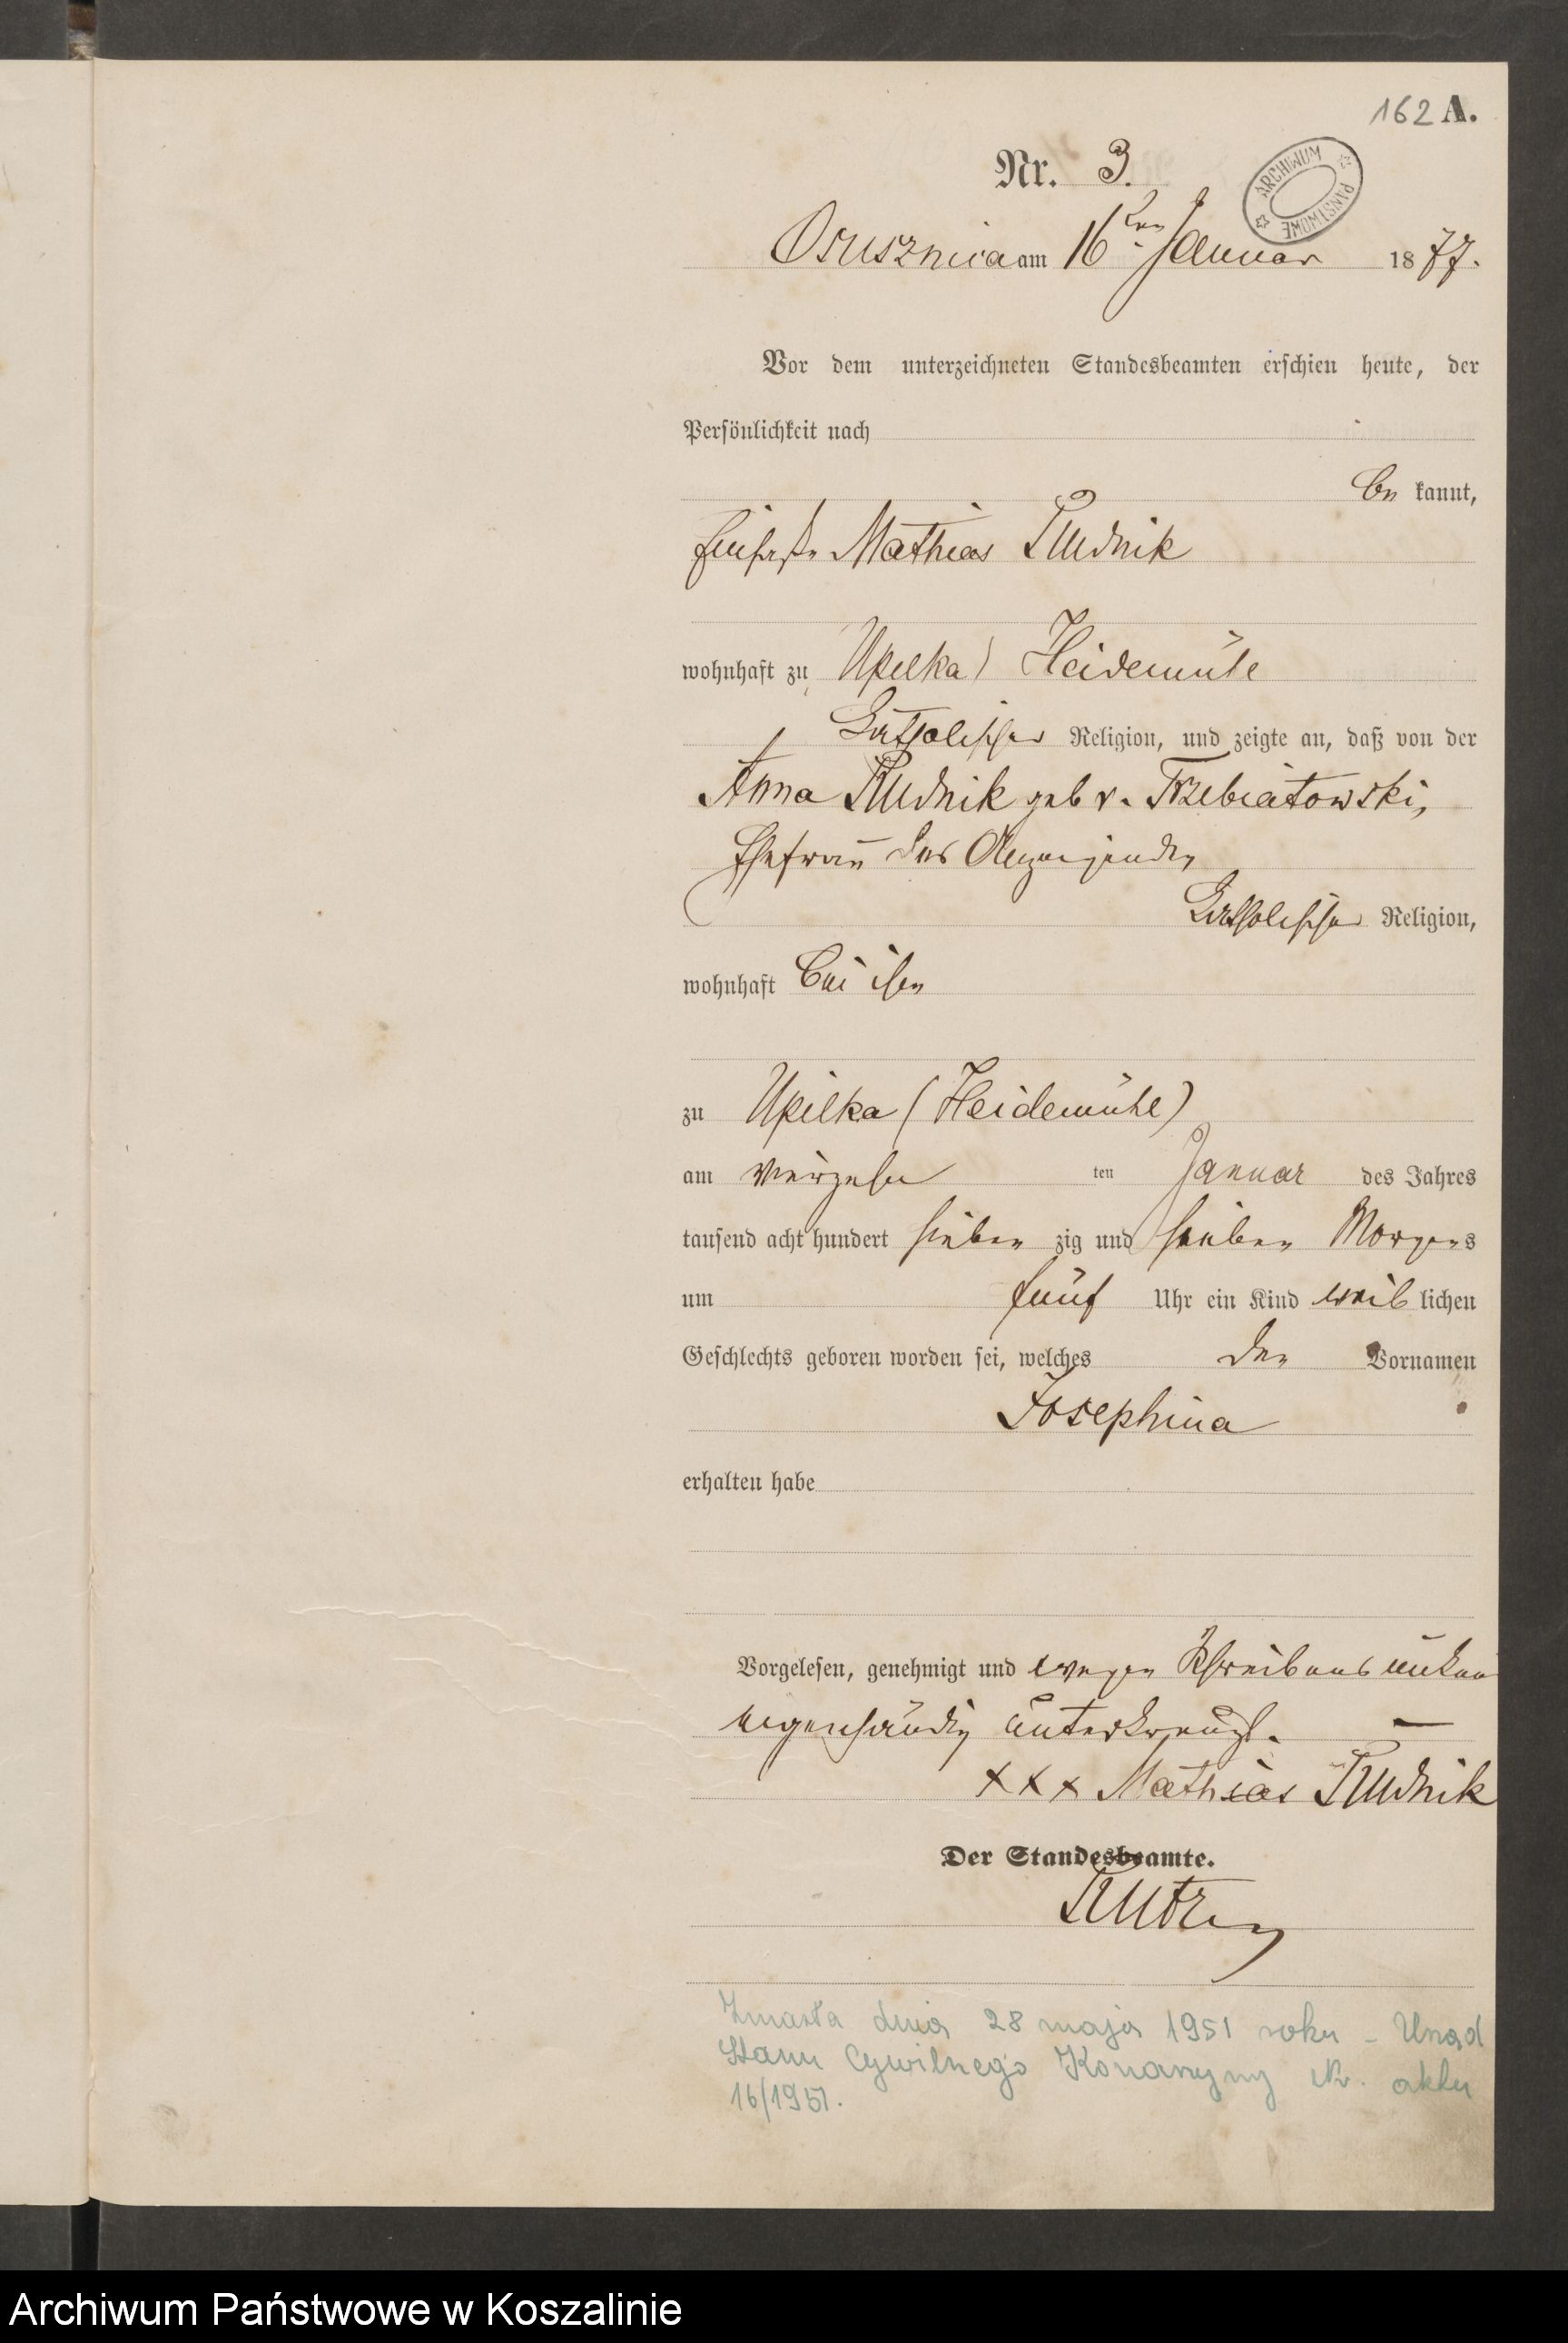 162 A.
Nr. 3.
ARCHIWUM PAŃSTWOWE
Osusznica am 16ten Januar 1877.
Vor dem unterzeichneten Standesbeamten erschien heute, der
Persönlichkeit nach
be kannt,
Mathias Rudnik
wohnhaft zu Upilka) Heidemühle
katholischer Religion, und zeigte an, daß von der
Anna Rudnik geb v. Trzebiatowski,
Ehefrau des Anzeigenden
katholischer Religion,
wohnhaft bei ihm
zu Upilka (Heidemühle)
am vierzehn ten Januar des Jahres
tausend acht hundert sieben zig und sieben Morgens
um fünf Uhr ein Kind weib lichen
Geschlechts geboren worden sei, welches den Vornamen
Josephina
erhalten habe
Vorgelesen, genehmigt und wegen Schreibens
eigenhändig unterkreuzt.
xxx Mathias Rudnik
Der Standesbeamte.
Zmarła dnia 28 maja 1951 roku - Urząd
Stanu Cywilnego Konarzyny Nr. aktu
16/1951.
Archiwum Państwowe w Koszalinie